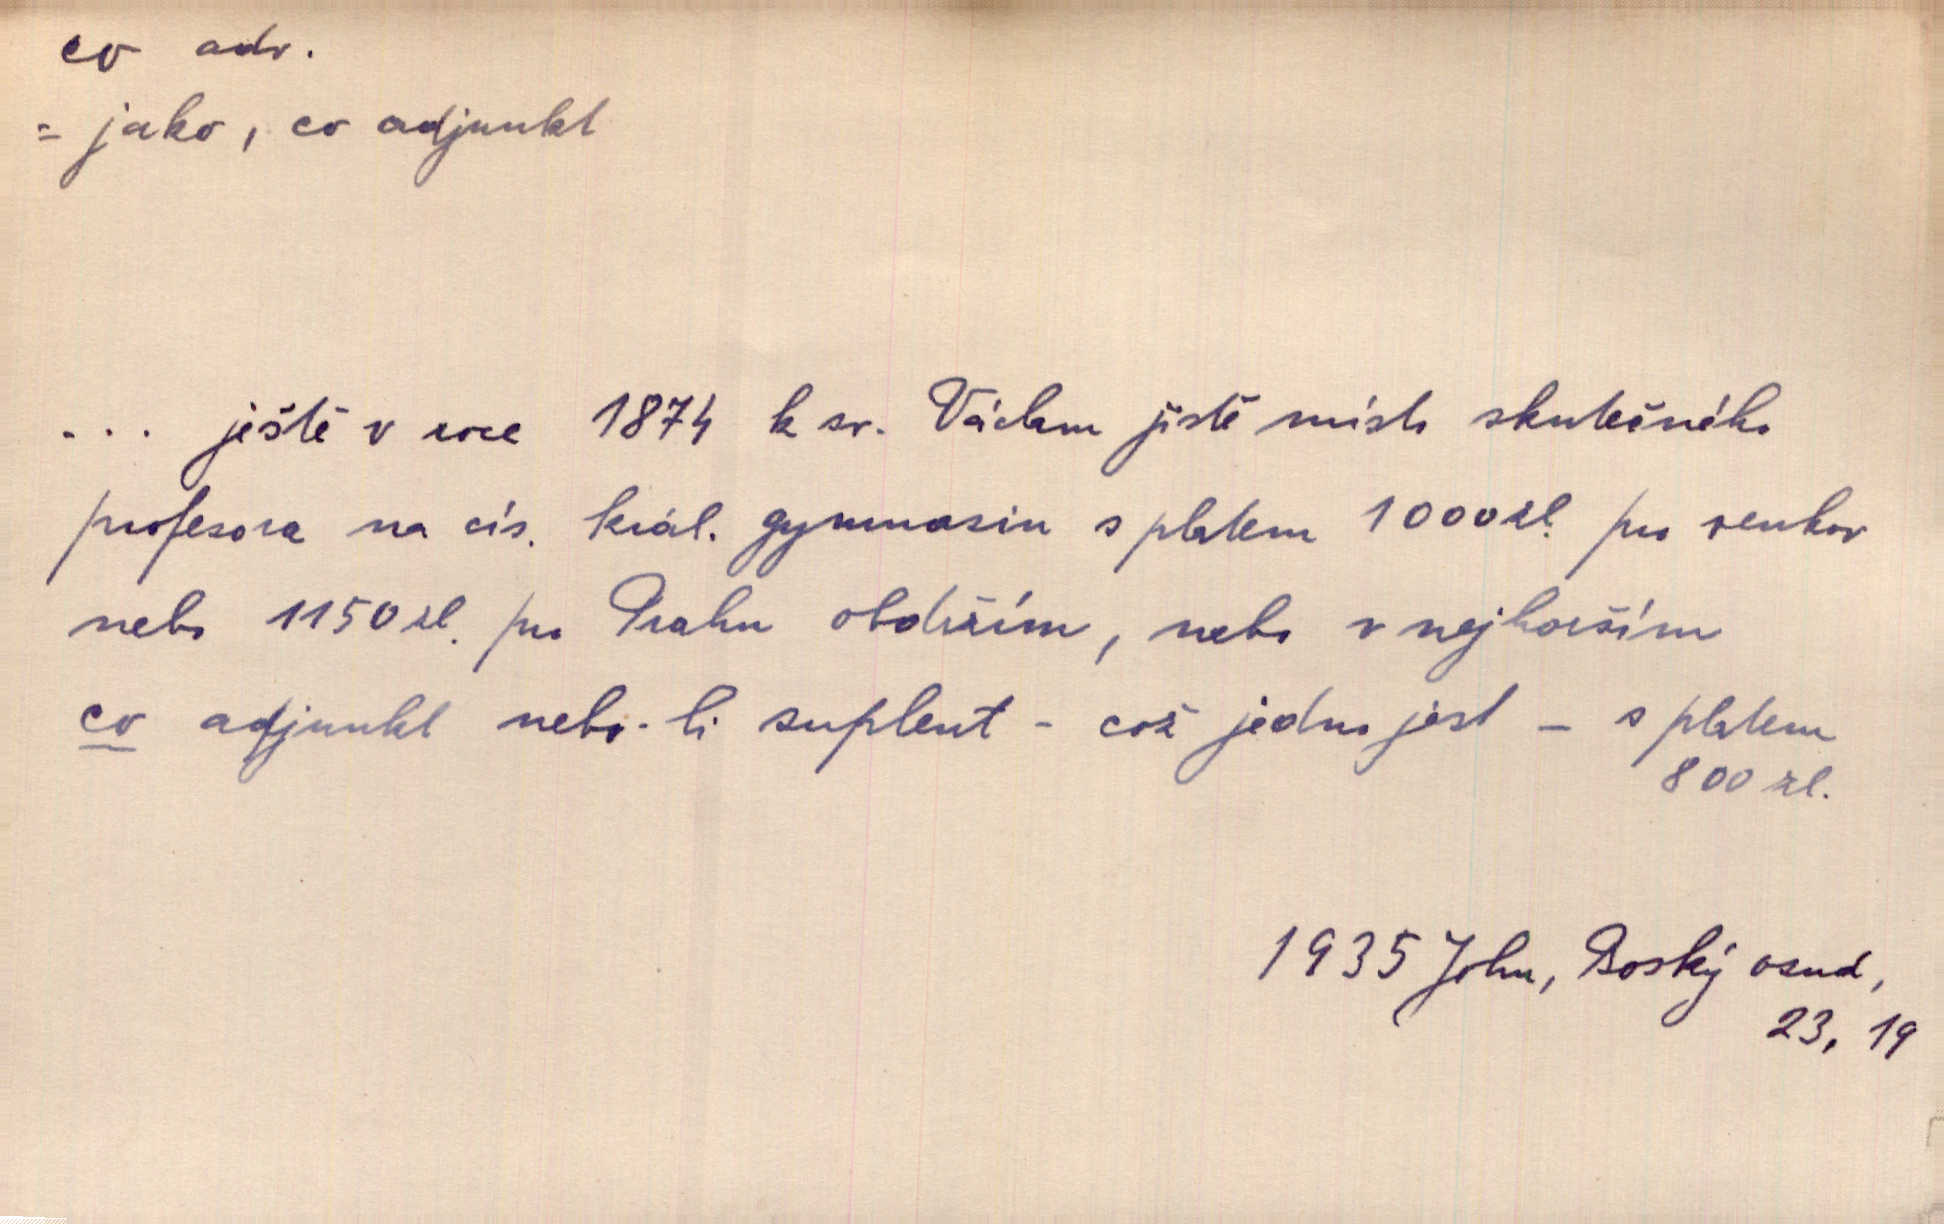 co adv.
= jako, co adjunkt
... ještě v roce 1874 k sv. Václavu jistě místo skutečného
profesora na cís. král. gymnasiu s platem 1000 zl. pro venkov
nebo 1150 zl. pro Prahu obdržím, nebo v nejhorším
co adjunkt nebo-li suplent - což jedno jest - s platem
800 zl.
1935 John, Boský osud,
23, 19